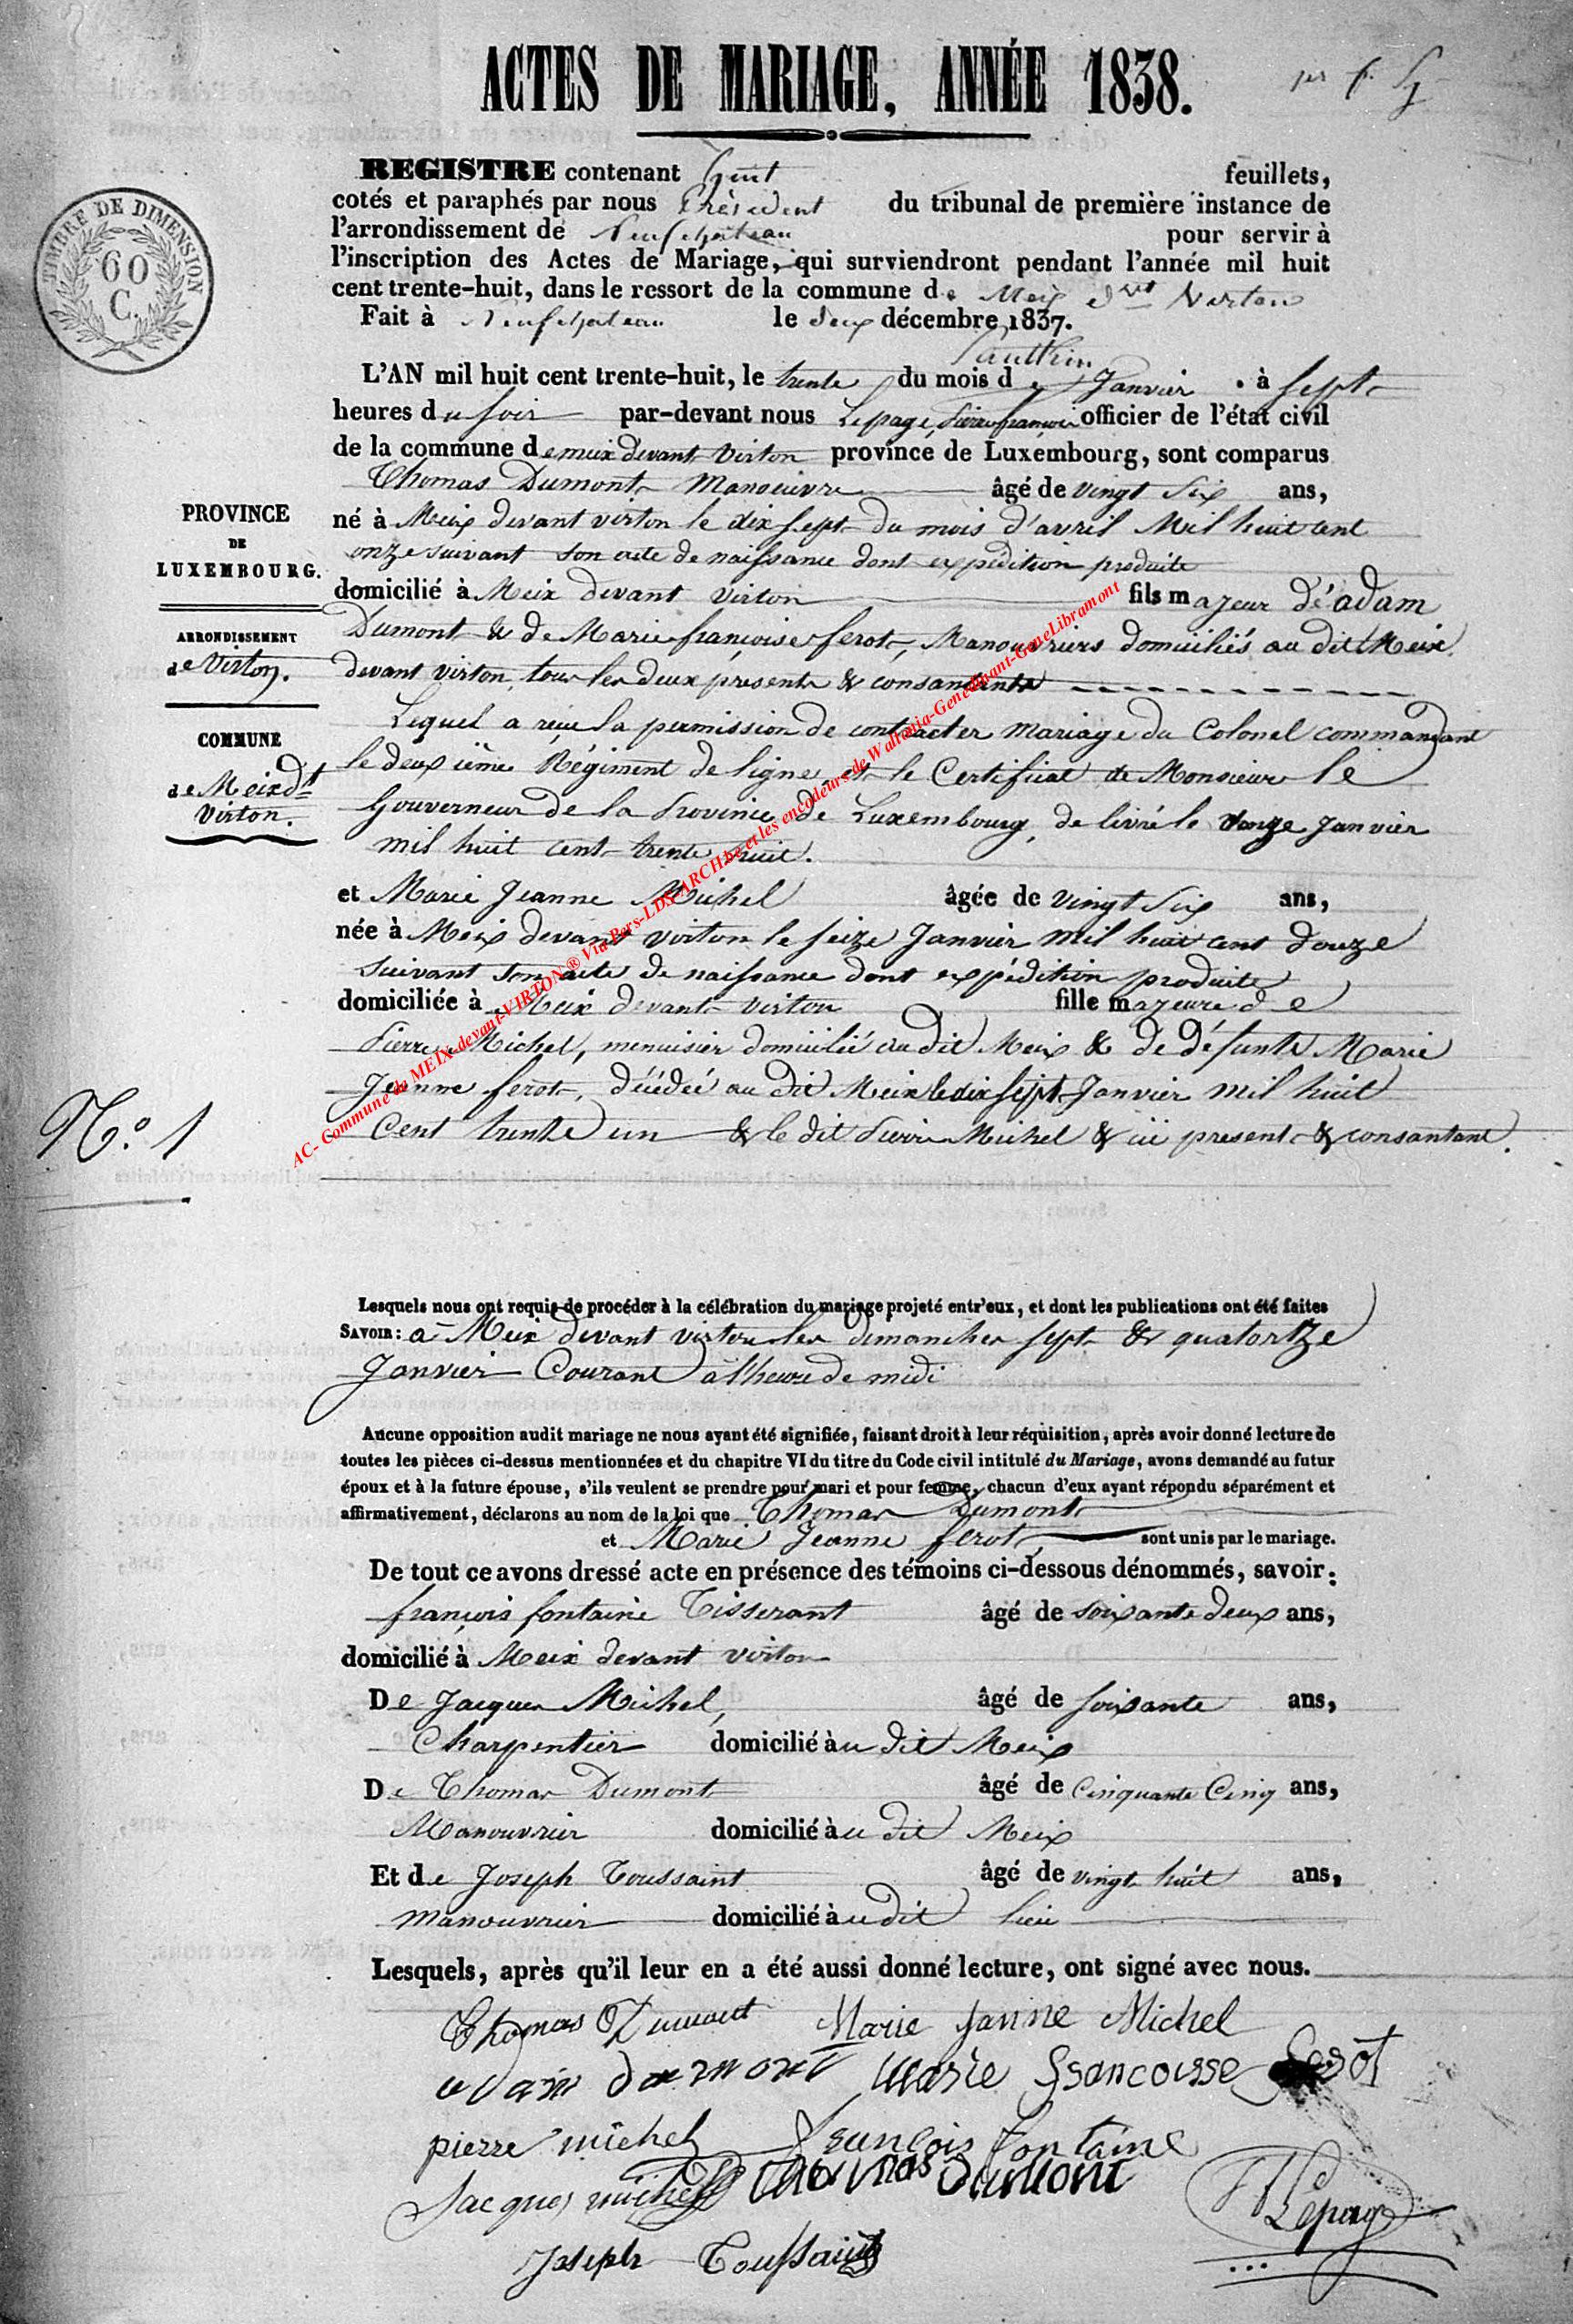 ACTES DE MARIAGE, ANNÉE 1838.
TIMBRE DE DIMENSION
60
C.
REGISTRE contenant huit feuillets,
cotés et paraphés par nous Président du tribunal de première instance de
l'arrondissement de Neufchateau pour servir à
l'inscription des Actes de Mariage, qui surviendront pendant l'année mil huit
cent trente-huit, dans le ressort de la commune de Meix dvt Virton
Fait à Neufchateau le deux décembre 1837.
L'AN mil huit cent trente-huit, le trente du mois de Janvier à sept
heures du soir par-devant nous Lepage, Pierre françois officier de l'état civil
de la commune de meix devant Virton province de Luxembourg, sont comparus
Thomas Dumont Manouvre âgé de vingt six ans,
PROVINCE
DE
LUXEMBOURG.
ARRONDISSEMENT
de Virton.
COMMUNE
de Meix dt
Virton.
né à Meix devant virton le dix sept du mois d'avril Mil huit cent
onze suivant son acte de naissance dont expédition produite
domicilié à Meix devant virton fils majeur de adam
Dumont & de Marie françoise ferot, Manouvriers domiciliés au dit Meix
devant virton, tous les deux presents & consantants
Lequel a reçu la permission de contracter mariage du Colonel commandant
le deuxième Régiment de ligne, et le Certificat de Monsieur le
Gouverneur de la Province de Luxembourg, delivré le onze Janvier
mil huit cent trente huit.
et Marie Jeanne Michel âgée de vingt six ans,
née à Meix devant virton le seize Janvier mil huit cent douze
suivant son acte de naissance dont expédition produite
domiciliée à Meix devant virton fille majeure de
Pierre Michel, menuisier domicilié au dit Meix & de défunte Marie
Jeanne ferot, décédée au dit Meix le dix sept Janvier mil huit
Cent trente un & le dit Pierre Michel & ici present & consantant.
N.o 1
AC- Commune de MEIX-devant-VIRTON ® Via Pers-LDS-ARCH.be et les encodeurs de Wallonia-GeneDinant-GeneLibramont
Lesquels nous ont requis de procéder à la célébration du mariage projeté entr'eux, et dont les publications ont été faites
SAVOIR: à Meix devant virton les dimanches sept & quatortze
Janvier Courant à l'heure de midi
Aucune opposition audit mariage ne nous ayant été signifiée, faisant droit à leur réquisition, après avoir donné lecture de
toutes les pièces ci-dessus mentionnées et du chapitre VI du titre du Code civil intitulé du Mariage, avons demandé au futur
époux et à la future épouse, s'ils veulent se prendre pour mari et pour femme, chacun d'eux ayant répondu séparément et
affirmativement, déclarons au nom de la loi que Thomas Dumont
et Marie Jeanne ferot, sont unis par le mariage.
De tout ce avons dressé acte en présence des témoins ci-dessous dénommés, savoir:
françois fontaine Tisserant âgé de soixante deux ans,
domicilié à Meix devant virton
De Jacques Michel, âgé de soixante ans,
Charpentier domicilié au dit Meix
De Thomas Dumont âgé de Cinquante Cinq ans,
Manouvrier domicilié au dit Meix
Et de Joseph Toussaint âgé de vingt huit ans,
manouvrier domicilié au dit lieu
Lesquels, après qu'il leur en a été aussi donné lecture, ont signé avec nous.
Thomas Dumont Marie Janne Michel
adam dumont Marie Francoisse Ferot
pierre michel François Fontaine
Jacques michel Thomas dumont Lepage
Joseph Toussaint